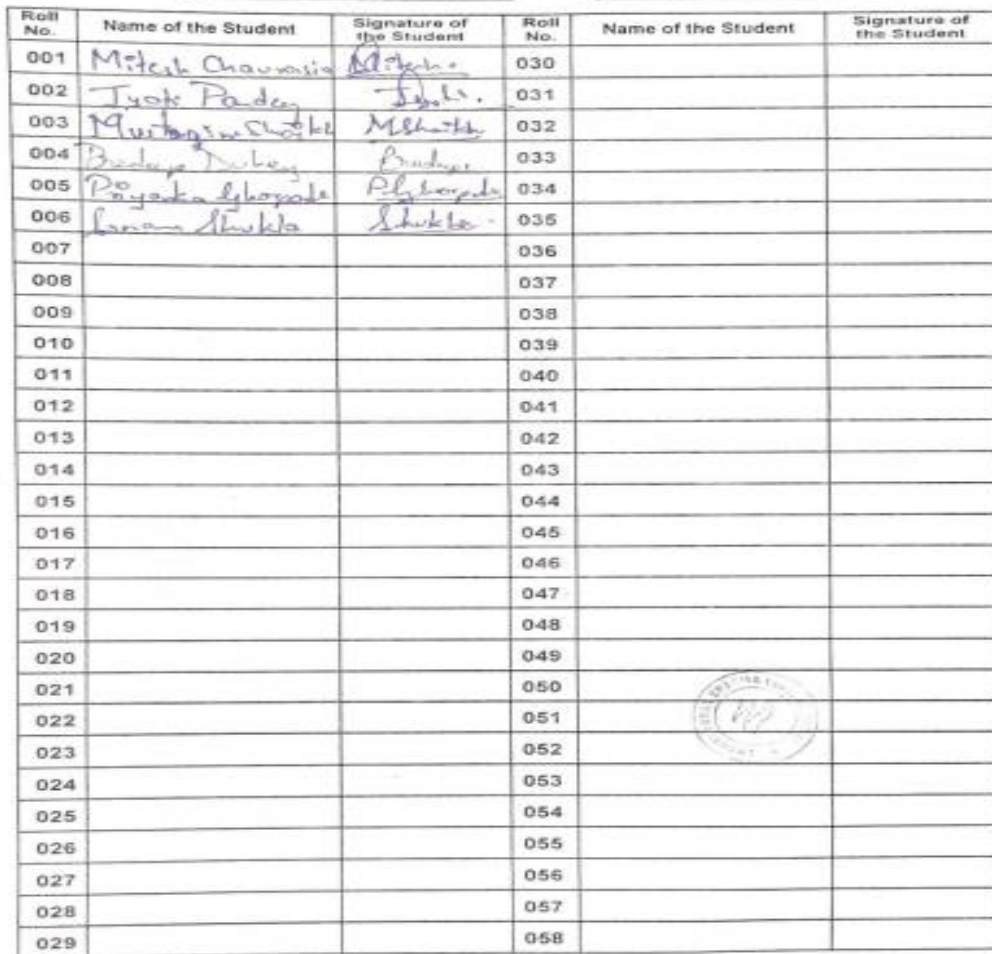 Roll No. Name of the Student Signature of the Student Roll No. Name of the Student Signature of the Student
001 Mitesh Chaurasia Mitesh. 030
002 Jyoti Pandey Jyoti. 031
003 Shaikh MShaikh 032
004 Dubey 033
005 Priyanka Ghorpade PGhorpade 034
006 Shukla Shukla 035
007 036
008 037
009 038
010 039
011 040
012 041
013 042
014 043
015 044
016 045
017 046
018 047
019 048
020 049
021 050
022 051
023 052
024 053
025 054
026 055
027 056
028 057
029 058